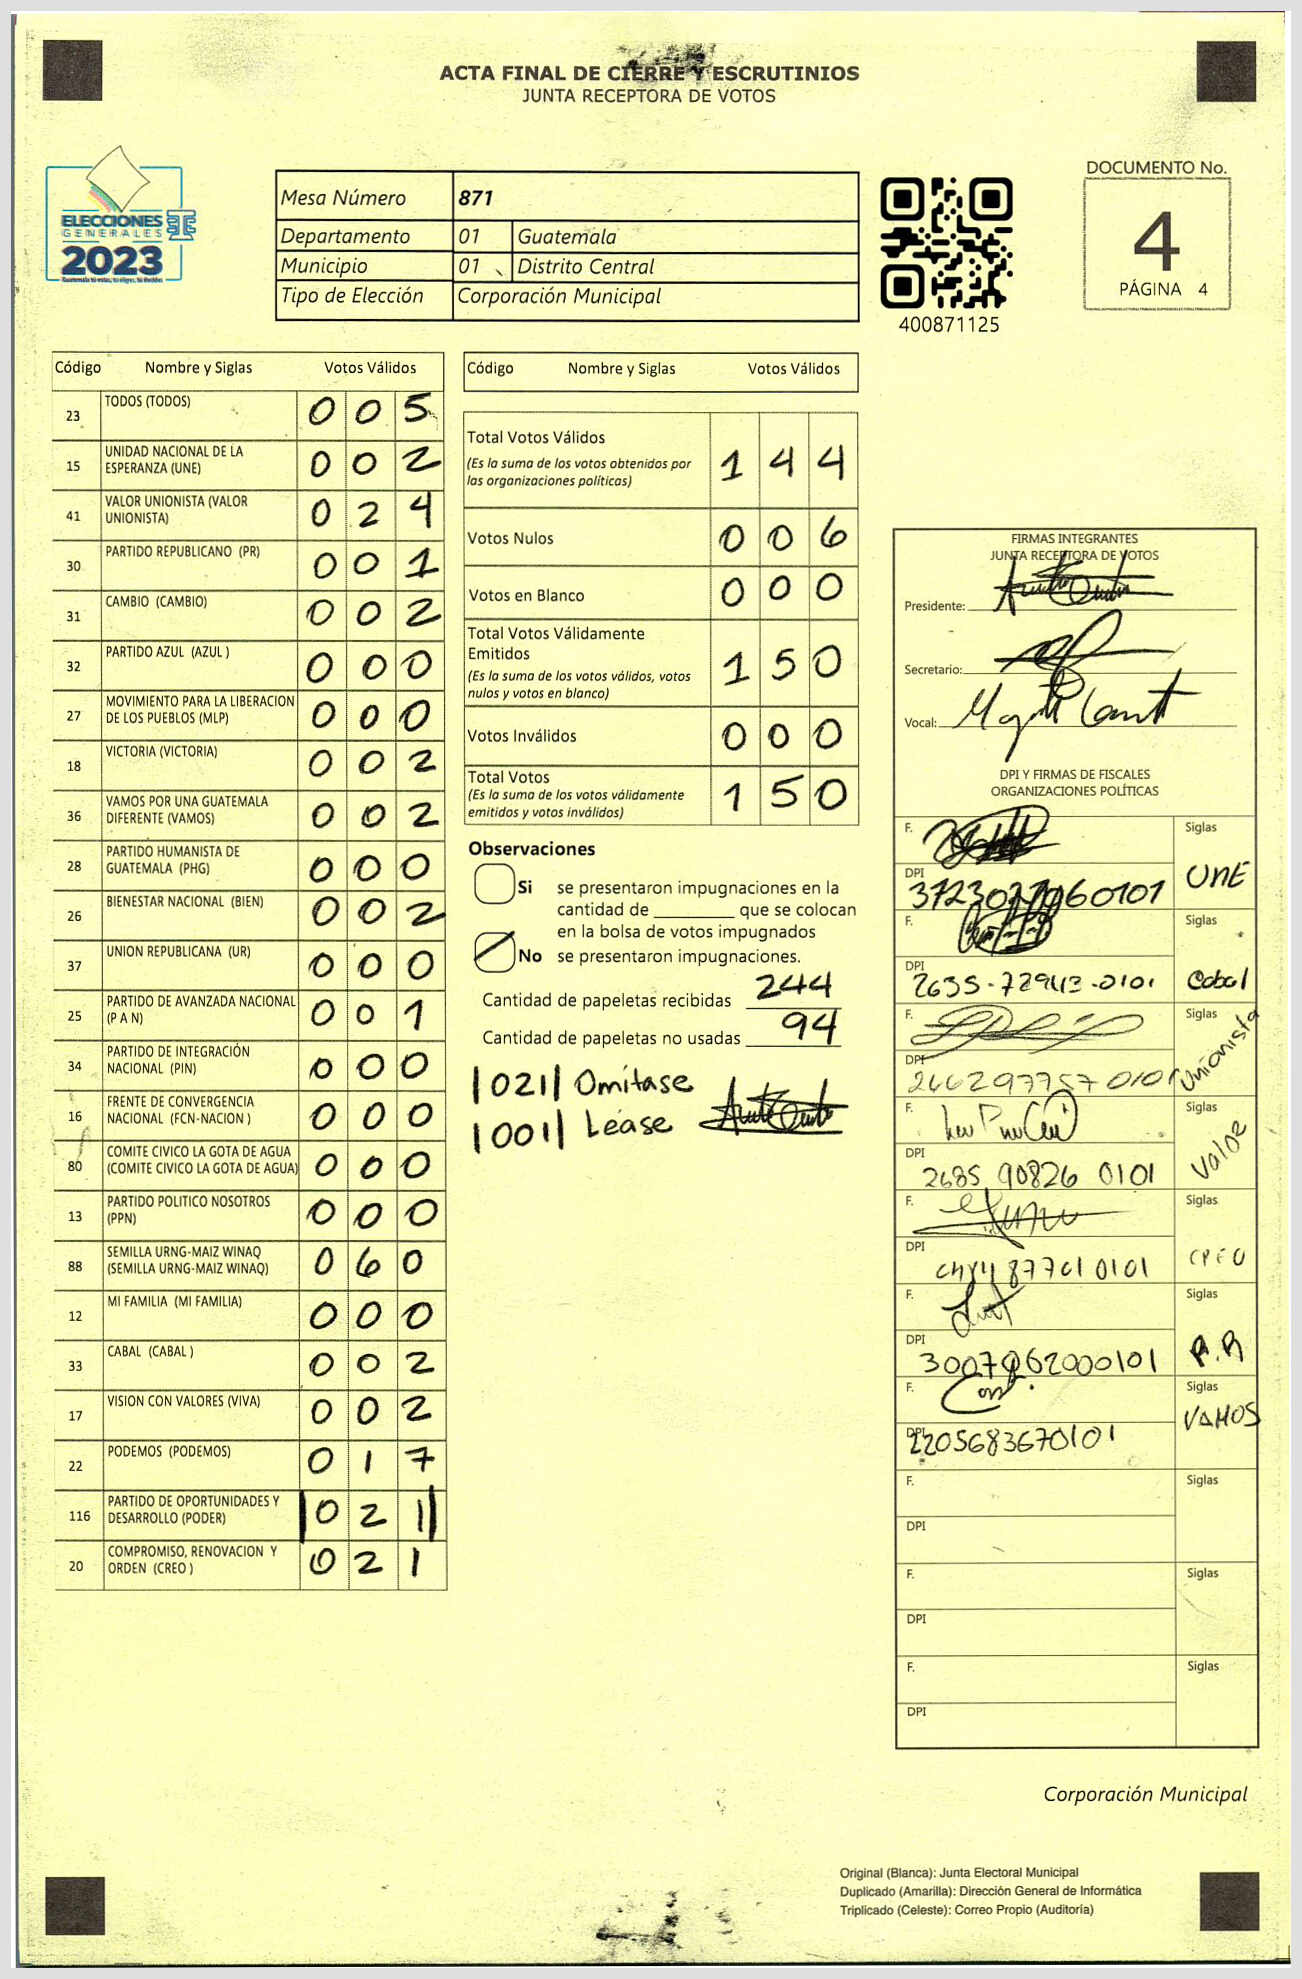 ACTA FINAL DE CIERRE Y ESCRUTINIOS
JUNTA RECEPTORA DE VOTOS
ELECCIONES
GENERALES
2023
Mesa Número 871
Departamento 01 Guatemala
Municipio 01 Distrito Central
Tipo de Elección Corporación Municipal
400871125
DOCUMENTO No.
4
PÁGINA 4
Código Nombre y Siglas Votos Válidos
23 TODOS (TODOS) 0 0 5
15 UNIDAD NACIONAL DE LA
ESPERANZA (UNE) 0 0 2
41 VALOR UNIONISTA (VALOR
UNIONISTA) 0 2 4
30 PARTIDO REPUBLICANO (PR) 0 0 1
31 CAMBIO (CAMBIO) 0 0 2
32 PARTIDO AZUL (AZUL ) 0 0 0
27 MOVIMIENTO PARA LA LIBERACION
DE LOS PUEBLOS (MLP) 0 0 0
18 VICTORIA (VICTORIA) 0 0 2
36 VAMOS POR UNA GUATEMALA
DIFERENTE (VAMOS) 0 0 2
28 PARTIDO HUMANISTA DE
GUATEMALA (PHG) 0 0 0
26 BIENESTAR NACIONAL (BIEN) 0 0 2
37 UNION REPUBLICANA (UR) 0 0 0
25 PARTIDO DE AVANZADA NACIONAL
(P A N) 0 0 1
34 PARTIDO DE INTEGRACIÓN
NACIONAL (PIN) 0 0 0
16 FRENTE DE CONVERGENCIA
NACIONAL (FCN-NACION ) 0 0 0
80 COMITE CIVICO LA GOTA DE AGUA
(COMITE CIVICO LA GOTA DE AGUA) 0 0 0
13 PARTIDO POLITICO NOSOTROS
(PPN) 0 0 0
88 SEMILLA URNG-MAIZ WINAQ
(SEMILLA URNG-MAIZ WINAQ) 0 6 0
12 MI FAMILIA (MI FAMILIA) 0 0 0
33 CABAL (CABAL ) 0 0 2
17 VISION CON VALORES (VIVA) 0 0 2
22 PODEMOS (PODEMOS) 0 1 7
116 PARTIDO DE OPORTUNIDADES Y
DESARROLLO (PODER) |0 2 1|
20 COMPROMISO, RENOVACION Y
ORDEN (CREO ) 0 2 1
Código Nombre y Siglas Votos Válidos
Total Votos Válidos 1 4 4
(Es la suma de los votos obtenidos por
las organizaciones políticas)
Votos Nulos 0 0 6
Votos en Blanco 0 0 0
Total Votos Válidamente
Emitidos 1 5 0
(Es la suma de los votos válidos, votos
nulos y votos en blanco)
Votos Inválidos 0 0 0
Total Votos 1 5 0
(Es la suma de los votos válidamente
emitidos y votos inválidos)
Observaciones
Si se presentaron impugnaciones en la
cantidad de ________ que se colocan
en la bolsa de votos impugnados
No se presentaron impugnaciones.
Cantidad de papeletas recibidas 244
Cantidad de papeletas no usadas 94
|021| Omítase
|001| Léase
FIRMAS INTEGRANTES
JUNTA RECEPTORA DE VOTOS
Presidente:
Secretario:
Vocal:
DPI Y FIRMAS DE FISCALES
ORGANIZACIONES POLÍTICAS
F. Siglas
DPI UNE
F. Siglas
DPI 2635-72943-0101 Cabal
F. Siglas
DPI 2662977570101 Unionista
F. Siglas
DPI 2685 90826 0101 Valor
F. Siglas
DPI CREO
F. Siglas
DPI P.R
F. Siglas
DPI 2205683670101 VAMOS
F. Siglas
DPI
F. Siglas
DPI
F. Siglas
DPI
Corporación Municipal
Original (Blanca): Junta Electoral Municipal
Duplicado (Amarilla): Dirección General de Informática
Triplicado (Celeste): Correo Propio (Auditoría)